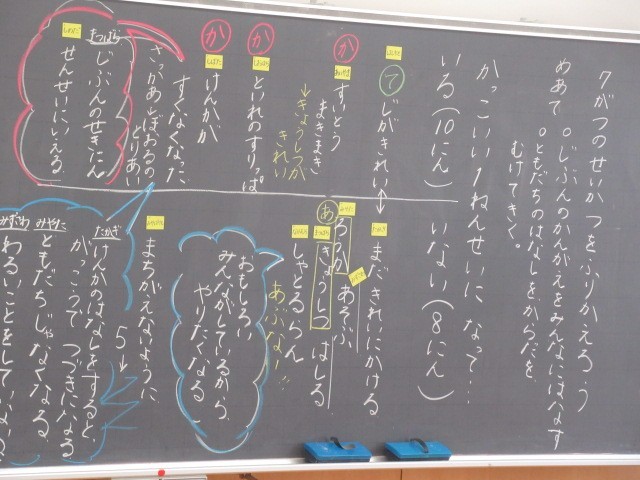 7がつのせいかつをふりかえろう
めあて 。じぶんのかんがえをみんなにはなす
。ともだちのはなしを、からだを、
むけてきく。
かっこいい1ねんせいに なって…
いる(10にん) いない(8にん)
て
じがきれい
まだきれいにかける
か
すいとう
まきまき
→きょうしつが
きれい
ろうか
あそぶ
あ
きょうしつ
はしる
か
といれのすりっぱ
しゃとるらん
あぶない!!
か
けんかが
すくなくなった
おもしろい
みんながしているから、
やりたくなる
さっかあぼおるの
とりあい
まちがえないように、
5
まつばら
じぶんのせきにん
せんせいにいえる
たかぎ
けんかのはなしをすると、
がっこうで つづきになる
みやた
ともだちじゃなくなる、
みずわ
わるいことをして